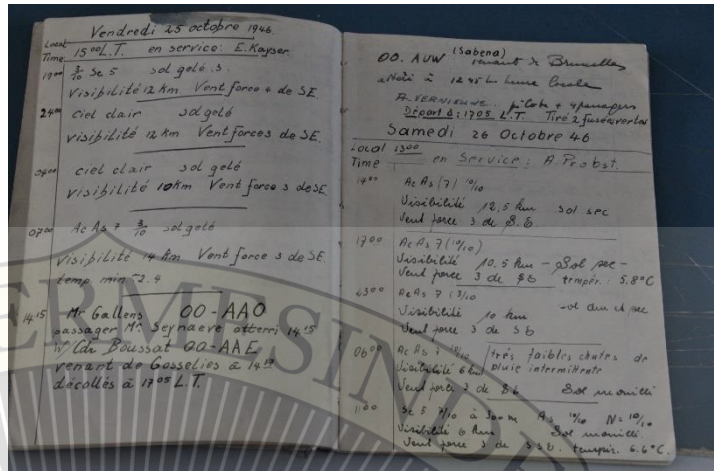 Vendredi 25 octobre 1946.
Local Time 15⁰⁰ L.T. en service: E. Kayser
19⁰⁰ 3/10 Sc 5 sol gelé 3.
Visibilité 12 km Vent force 4 de SE.
24⁰⁰ Ciel clair sol gelé
visibilité 12 km Vent force 3 de SE.
04⁰⁰ ciel clair sol gelé
visibilité 10 km Vent force 3 de SE.
07⁰⁰ Ac As 7 3/10 sol gelé
Visibilité 14 km Vent force 3 de SE.
temp. min -2.4
14¹⁵ Mr Gallens OO-AAO
passager Mr Seynaeve atterri 14¹⁵
W/Cdr Boussat OO-AAE
venant de Gosselies à 14¹⁷
décollés à 17⁰⁵ L.T.
OO. AUW (Sabena) venant de Bruxelles
à 12 45 heure locale
A. VERNIEUWE pilote + 4 passagers
Départ à: 1705 L.T. Tiré 2 fusées vertes
Samedi 26 Octobre 46
Local Time 13⁰⁰ en Service: A. Probst.
14⁰⁰ Ac As (7) 10/10
Visibilité 12,5 km sol sec
Vent force 3 de S.E.
17⁰⁰ Ac As 7 (10/10)
Visibilité 10.5 km - Sol sec -
Vent force 3 de SE tempér.: 5.8°C
23⁰⁰ Ac As 7
Visibilité 10 km sol dur et sec
Vent force 3 de SE
06⁰⁰ Ac As 7 10/10 très faibles chutes de
Visibilité 6 km pluie intermittente
Vent force 2 de SE Sol mouillé
11⁰⁰ Sc 5 7/10 à 300 m As 10/10 N = 10/10
Visibilité 6 km Sol mouillé.
Vent force 3 de SSE. tempér. 6.6°C.
ERMESIND